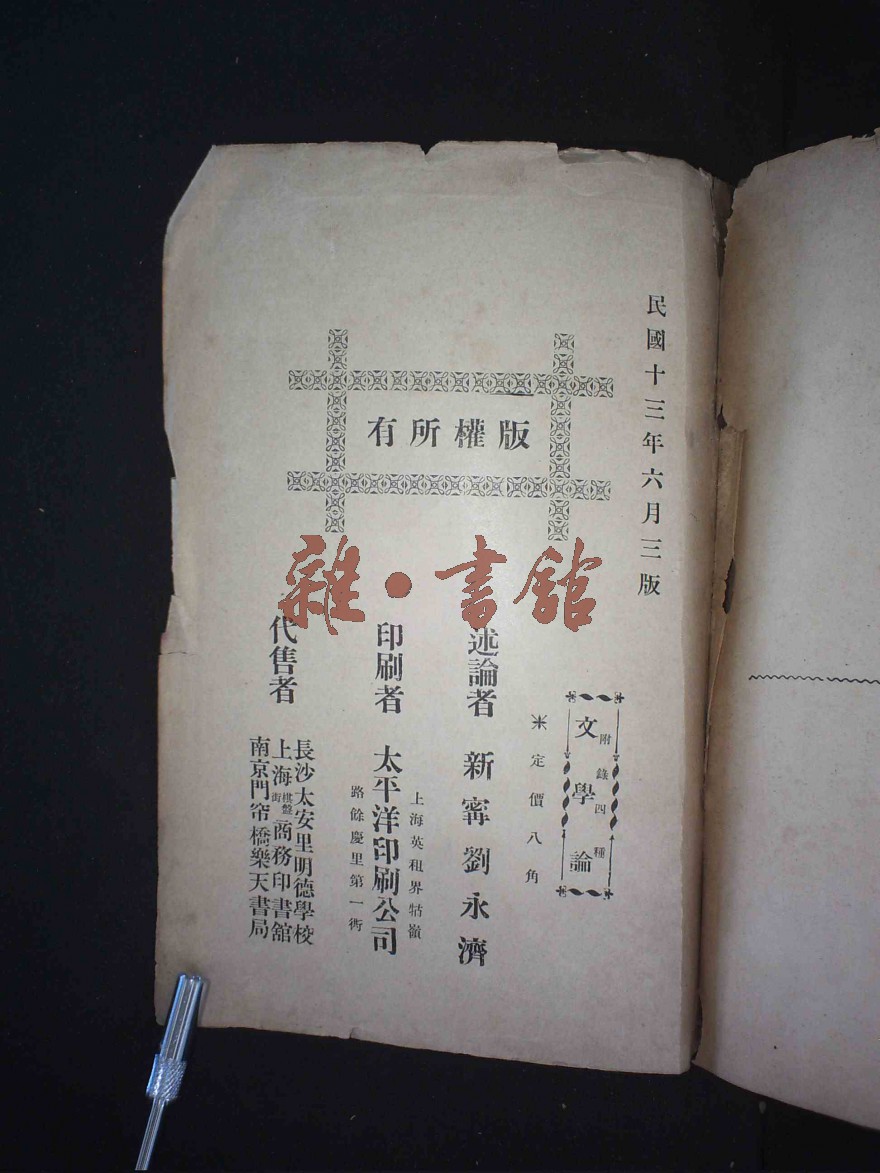 民國十三年六月三版
版權所有
雜·書館
文學論
附錄四種
定價八角
述論者 新甯劉永濟
上海英租界牯嶺
路餘慶里第一衖
印刷者 太平洋印刷公司
代售者
長沙太安里明德學校
上海棋盤街商務印書館
南京門帘橋樂天書局